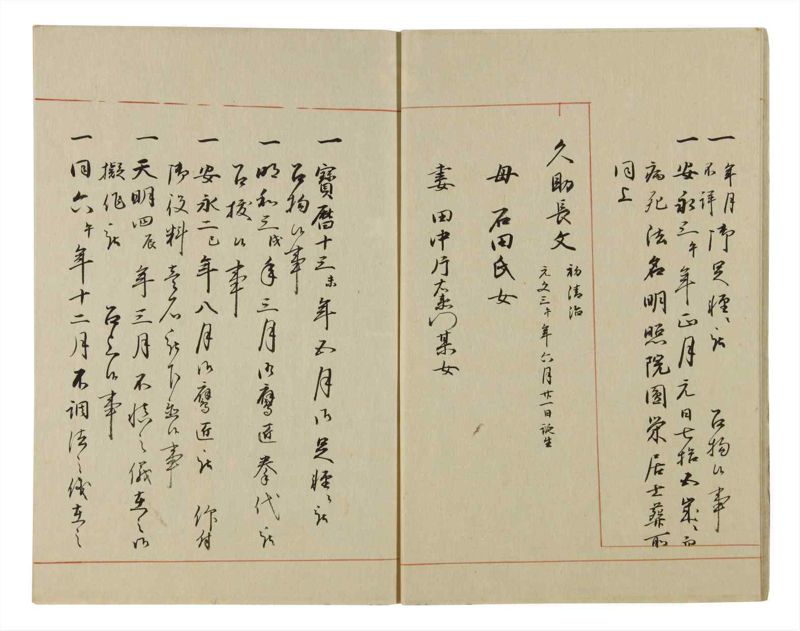 一 年月不詳 御足軽ニ被 召抱候事
一 安永三午年正月元日七拾五歳ニ而
病死法名明照院園栄居士葬所
同上
久助長文 初清治 元文三午年六月廿一日誕生
母 石田氏女
妻 田中庁右衛門某女
一 寶暦十三未年五月御足軽ニ被
召抱候事
一 明和三戌年三月御鷹匠拳代被
召抜候事
一 安永二巳年八月御鷹匠被 仰付
御役料 壱石被下置候事
一 天明四辰年三月不慎之儀在之御
擬作被 召上候事
一 同六午年十二月不調法之儀在之